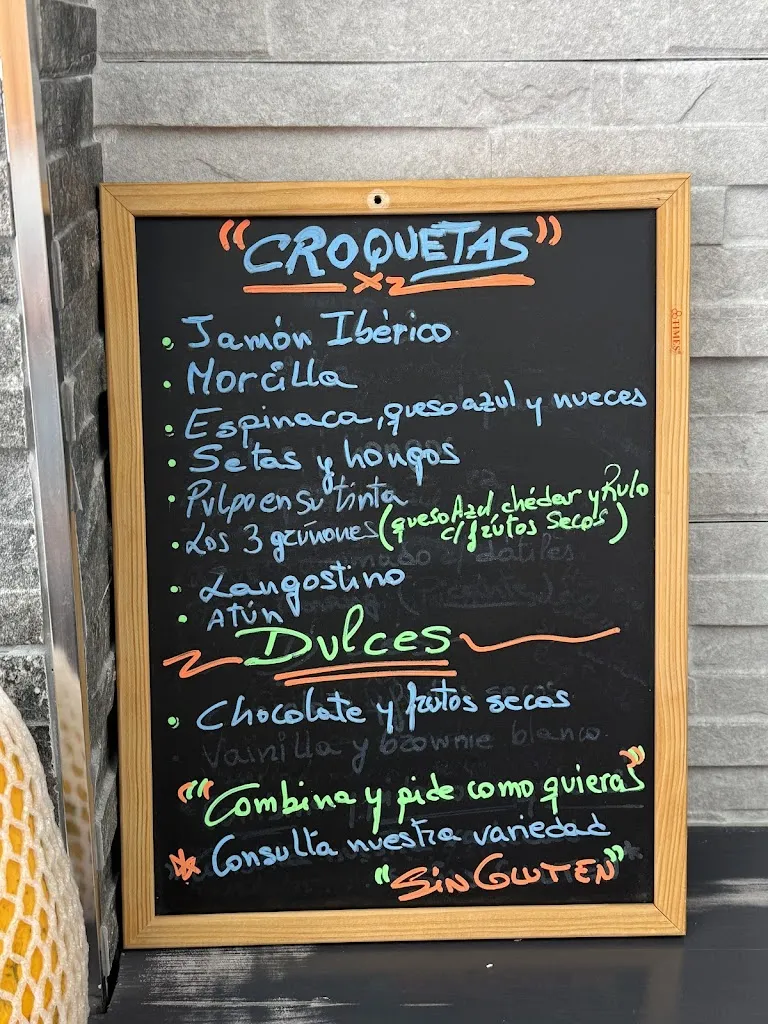 "CROQUETAS"
TIMES
Jamón Ibérico
Morcilla
Espinaca, queso azul y nueces
Setas y hongos
Pulpo en su tinta
Los 3 gruñones (queso Azul, chédar y Rulo
c/ frutos secos)
Langostino
ATÚN
Dulces
Chocolate y frutos secos
Vainilla y brownie blanco
"Combina y pide como quieras"
* Consulta nuestra variedad
"Sin GLUTEN"